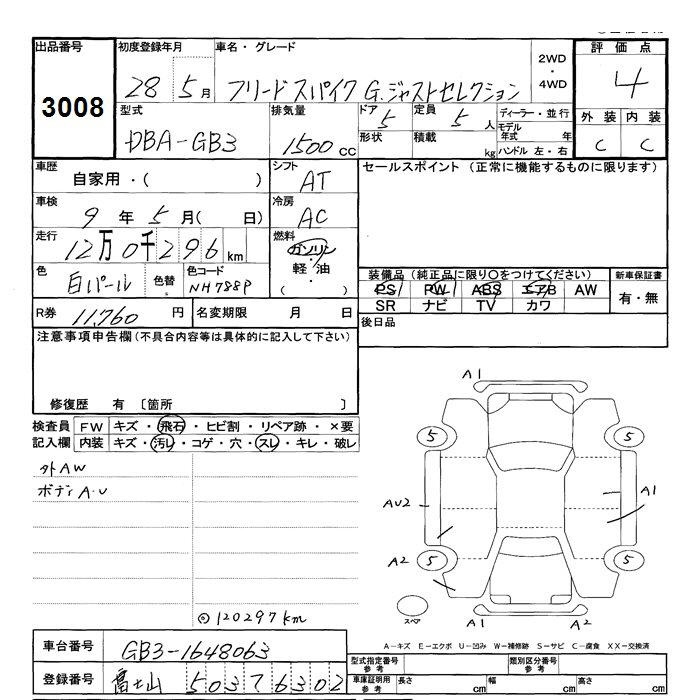 出品番号 初度登録年月 車名・グレード 評価点
3008 28 5月 フリードスパイク G.ジャストセレクション 2WD・4WD 4
型式 排気量 ドア 定員 ディーラー・並行 外装 内装
DBA-GB3 1500cc 5 5人 モデル年式 年 C C
形状 積載 kg ハンドル 左・右
車歴 シフト セールスポイント (正常に機能するものに限ります)
自家用・( ) AT
車検 冷房
9年 5月( 日) AC
走行 燃料
12万0千296km ガソリン・軽油
色 色替 色コード ( ) 装備品 (純正品に限り○をつけてください) 新車保証書
白パール NH788P PS PW ABS エアB AW 有・無
SR ナビ TV カワ
R券 11,760円 名変期限 月 日 後日品
注意事項申告欄(不具合内容等は具体的に記入して下さい)
修復歴 有 〔箇所 〕
検査員 FW キズ・飛石・ヒビ割・リペア跡・×要
記入欄 内装 キズ・汚レ・コゲ・穴・スレ・キレ・破レ
外AW
ボディA・U
◎120297km
A1
5 5
AU2 A1
A2 5 5
スペア A1 A2
A-キズ E-エクボ U-凹み W-補修跡 S-サビ C-腐食 XX-交換済
車台番号 GB3-1648063 型式指定番号 参考 類別区分番号 参考
登録番号 富士山 503 て 6302 車庫証明用 参考 長さ cm 幅 cm 高さ cm